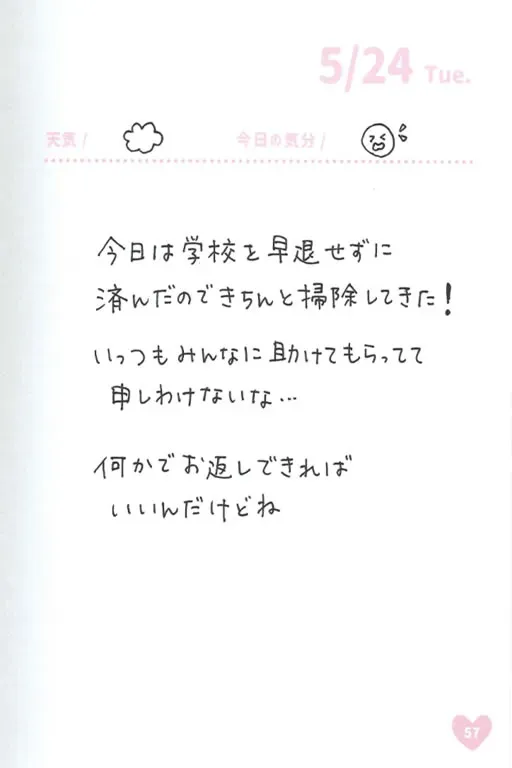 5/24 Tue.
天気/ 今日の気分/
今日は学校を早退せずに
済んだのできちんと掃除してきた!
いっつもみんなに助けてもらってて
申しわけないな...
何かでお返しできれば
いいんだけどね
57